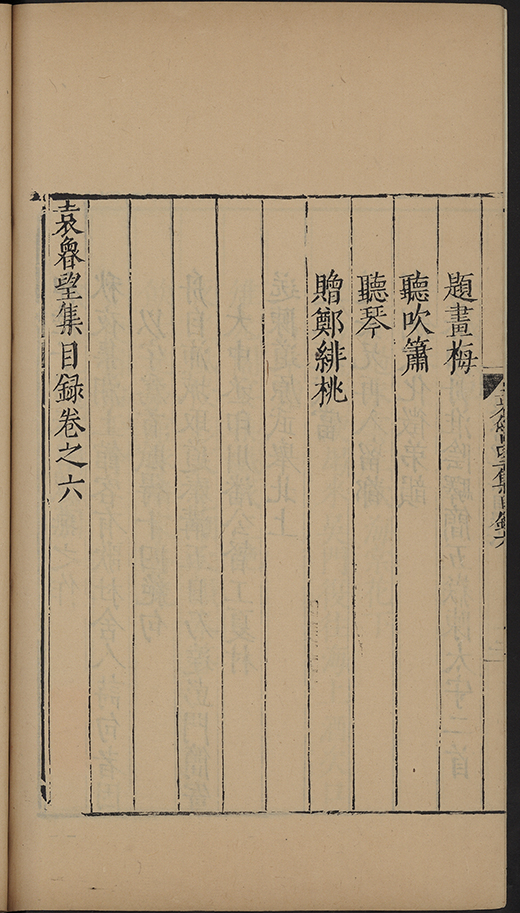 題畫梅
聽吹簫
聽琴
贈鄭緋桃
袁魯望集目録卷之六